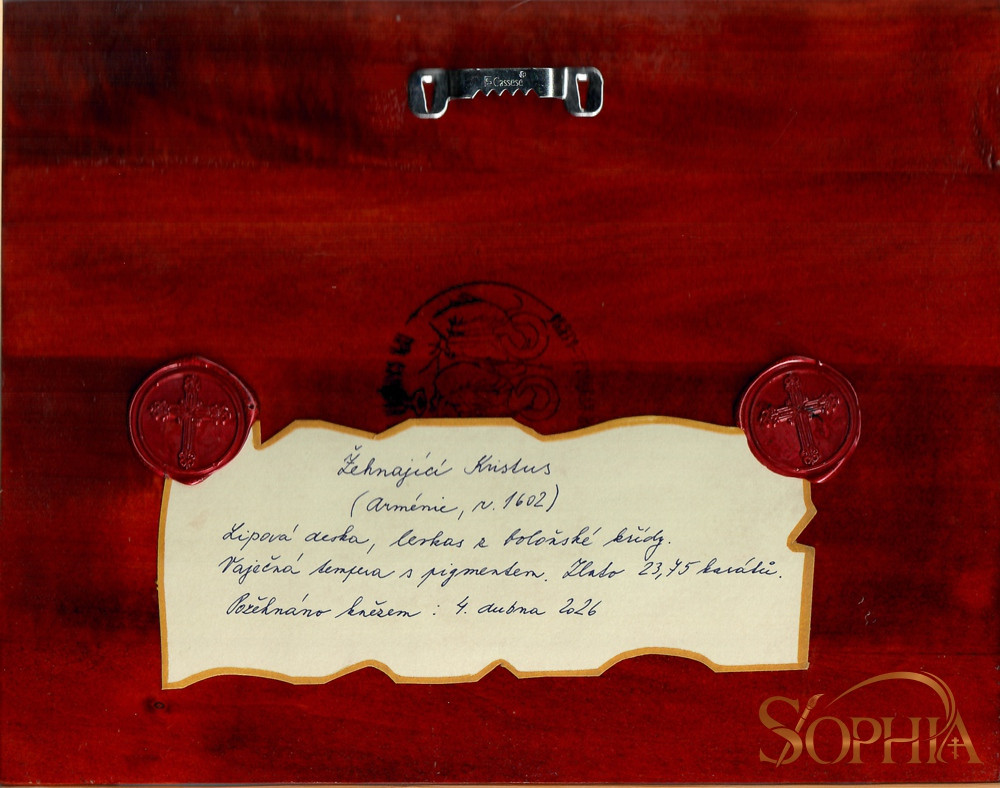 Cassese®
Žehnající Kristus
(Arménie, r. 1602)
Lipová deska, levkas z boloňské křídy.
Vaječná tempera s pigmentem. Zlato 23,75 karátů.
Požehnáno knězem : 4. dubna 2026
SOPHIA